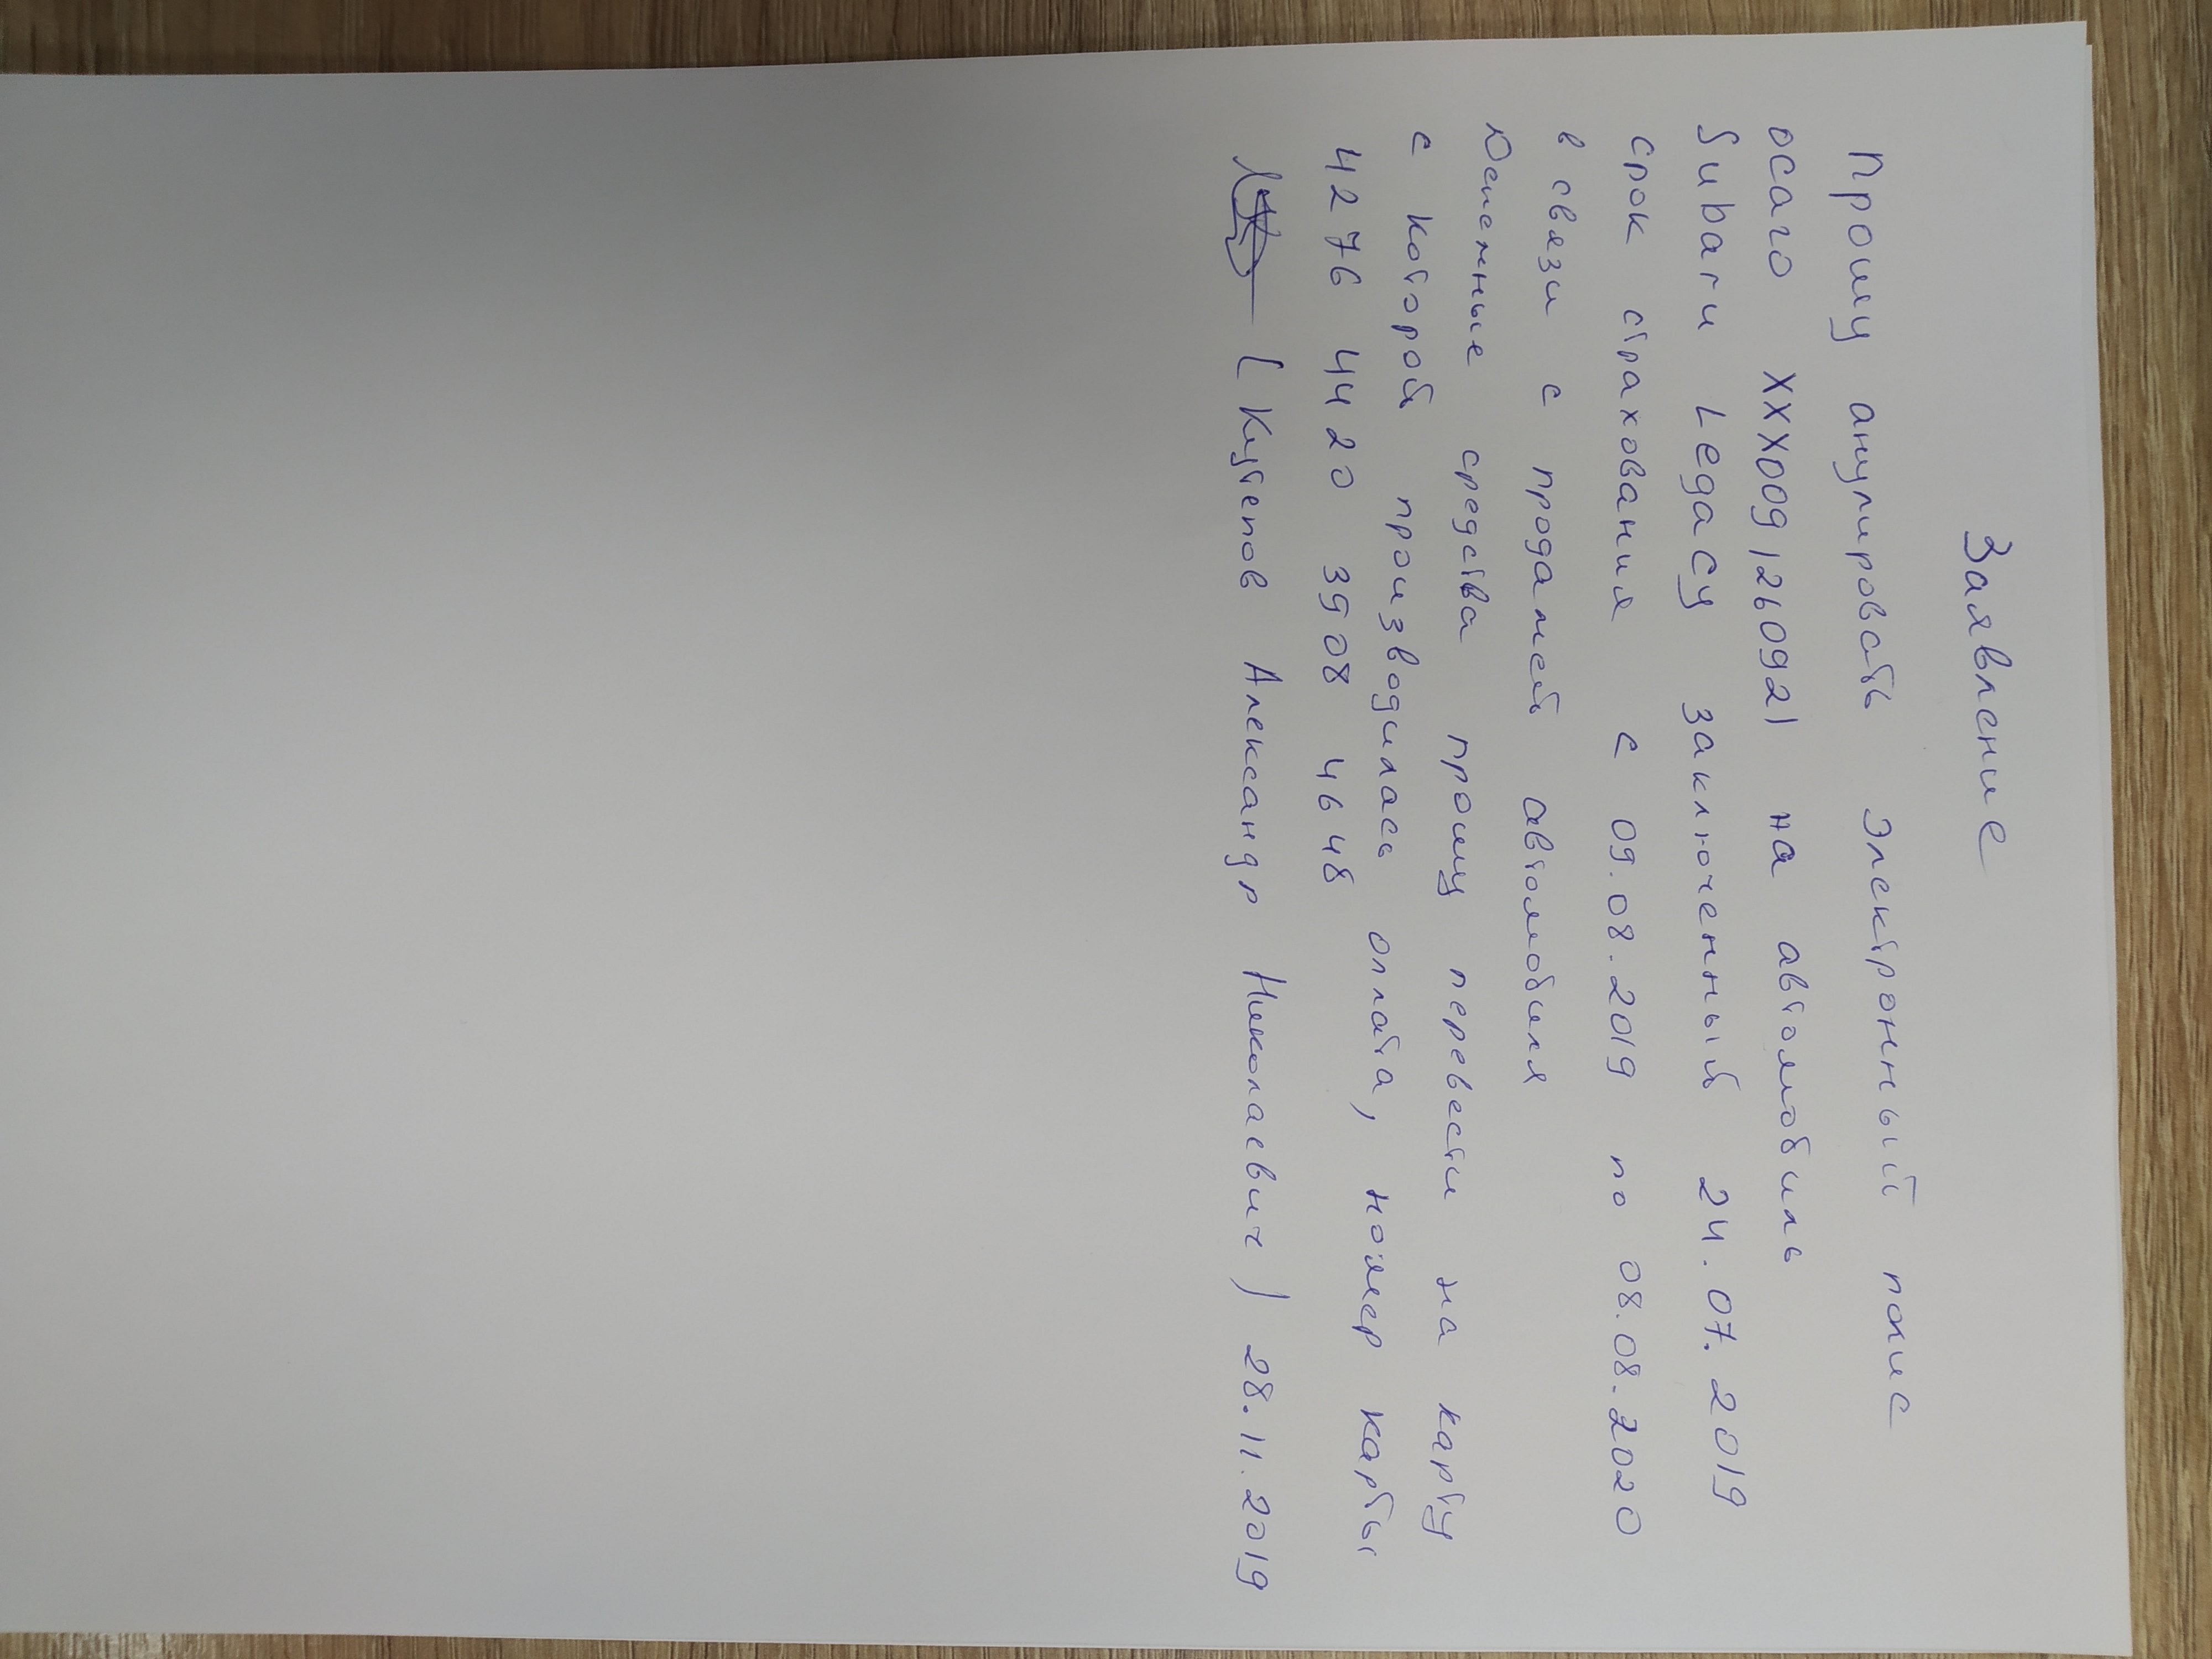 Заявление
Прошу анулировать электронный полис
осаго ХХХ0091260921 на автомобиль
Subaru Legacy заключенный 24.07.2019
срок страхования с 09.08.2019 по 08.08.2020
в связи с продажей автомобиля
Денежные средства прошу перевести на карту
с которой производилась оплата, номер карты
4276 4420 3908 4648
(Кутепов Александр Николаевич) 28.11.2019